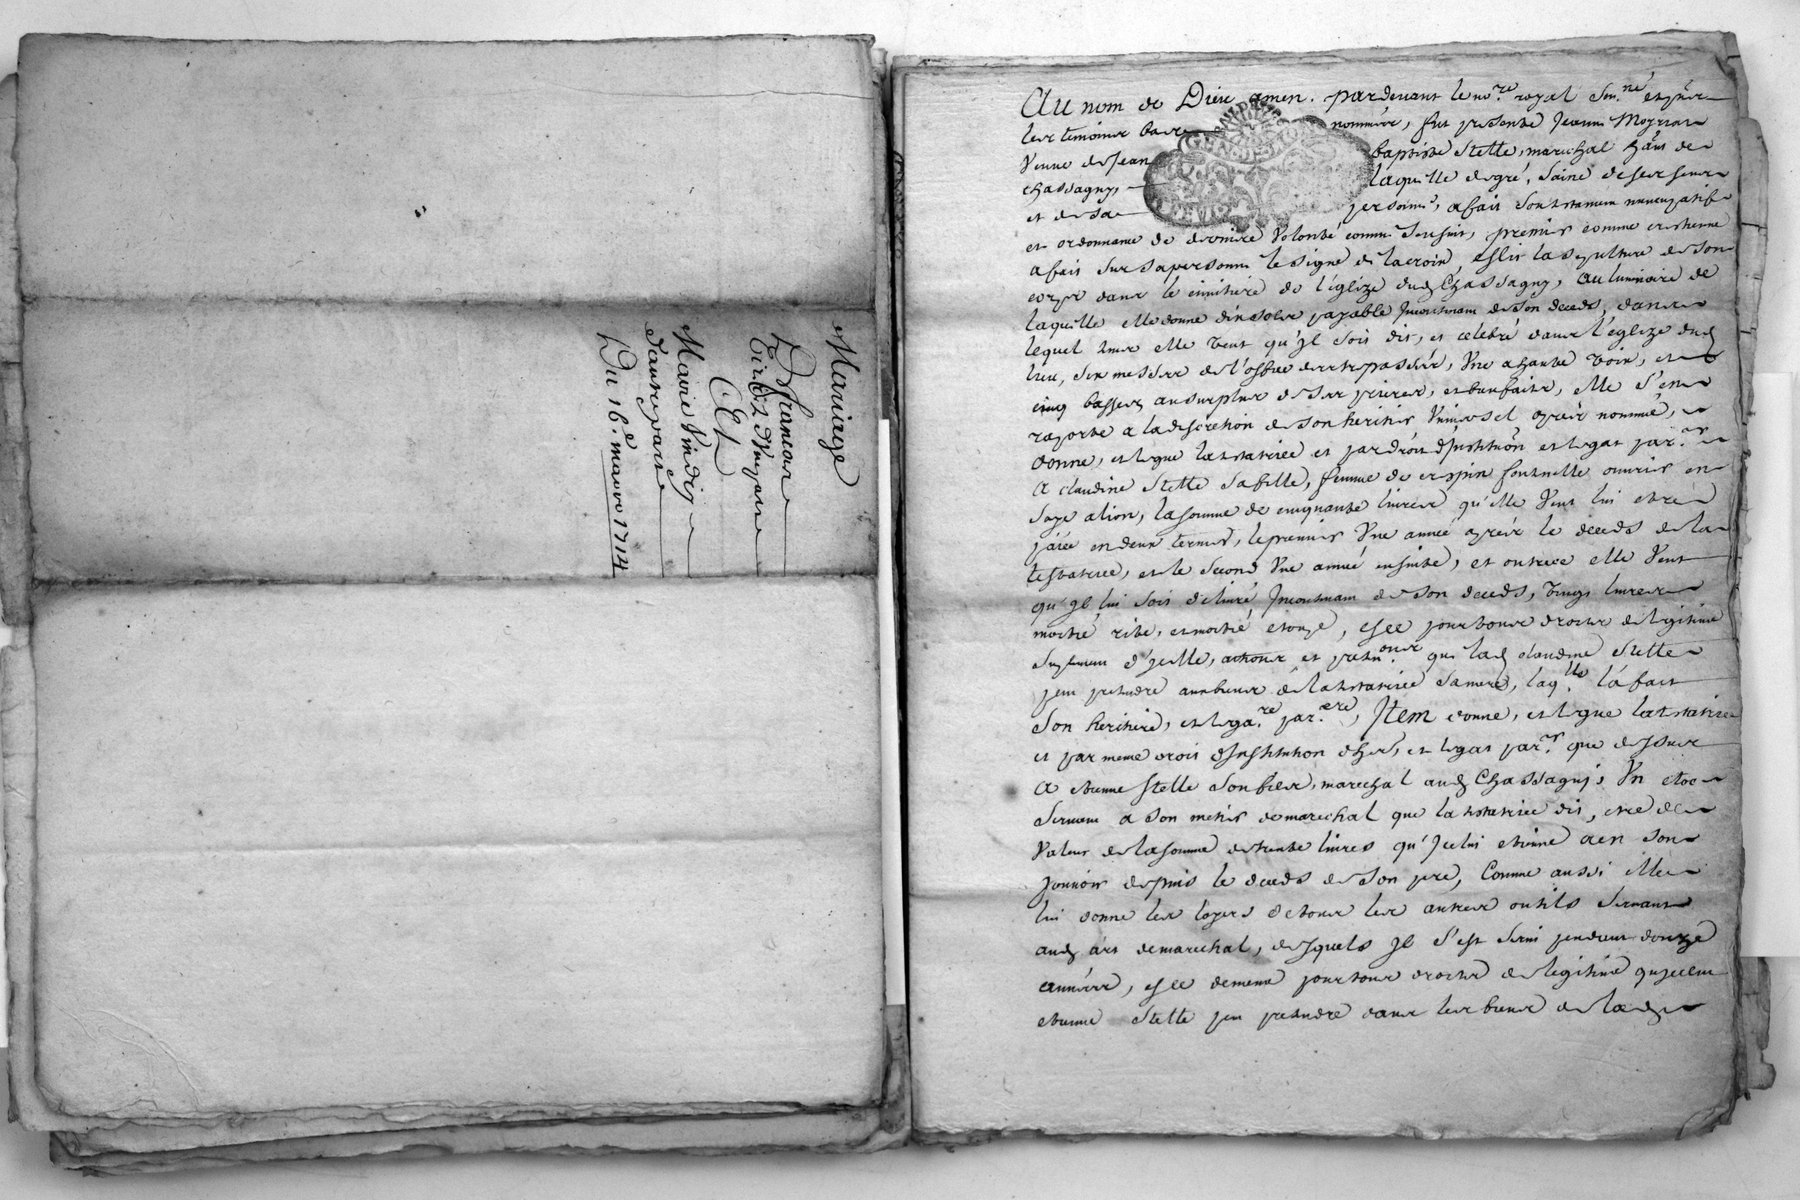 Mariage
De francois
Et
Marie Vindry
d'autre part
Du 16e. mars 1714
Au nom de Dieu amen. pardevant le no.re royal sou.né et pñs
les temoins bas nommés, fut presente Jeanne Moyroa
Veuve de Jean baptiste Stelle, marechal hãnt de
chassagny, laquelle de gré, saine de ses sens
et de sa personne, a fait son testament nuncupatif
et ordonnance de derniere Volonté comme sensuit, premier comme crestienne
a fait sur sa personne le signe de la croix, eslit la sepulture de son
corps dans le cimitiere de l'églize dud Chassagny, au luminaire de
laquelle elle donne dix sols payable Incontinant de son deceds, dans
lequel tems elle veut qu'Jl soit dit, et celebré dans l'églize dud
lieu, six messes de l'office des trepassés, Une a haute voix, et
cinq basses au surplus de ses prieres, et bienfaits, elle s'en
raporte a la discretion de son heritier Universel apres nommé,
donne, et legue la testatrice et par droit d'Jnstitution et legat par.er
A claudine Stelle sa fille, femme de crespin fontnelle ouvrier en
soye a lion, la somme de cinquante livres qu'elle Veut lui etre
paiée en deux termes, le premier Une année apres le deceds de la
testatrice, et le second Une année ensuite, et outre ce elle Veut
qu'Jl lui soit délivré Jncontinant de son deceds, vingt livres
moitié rite, et moitié etoupe, et ce pour tous droits de legitime
suplement d'jcelle, actions et preten.ons que lad claudine Stelle
peut pretendre aux biens de la testatrice sa mere, laq.lle l'a fait
son heritiere, et lega.re par.ere, Jtem donne, et legue la testatrice
et par meme droit d'Jnstitution d'her, et legat par.er que dessus
A etienne Stelle son fils, marechal aud Chassagny, Un etoc
servant a son metier de marechal que la testatrice dit, etre de
Valeur de la somme de trente livres qu'Jcelui etienne a en son
pouvoir depuis le deceds de son pere, Comme aussi elle
lui donne les loyers de tous les autres outils servant
aud art de marechal, desquels Jl s'est servi pendant douze
années, et ce de meme pour tous droits de legitime qu'jcelui
etienne Stelle peut pretendre dans les biens de lad